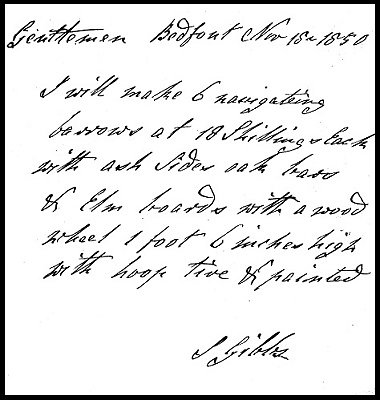 Gentlemen Bedfont Nov 18 - 1850
I will make 6 navigating
barrows at 18 Shillings Each
with ash Sides oak bars
& Elm boards with a wood
wheel 1 foot 6 inches high
with hoop tire & painted
S Gibbs